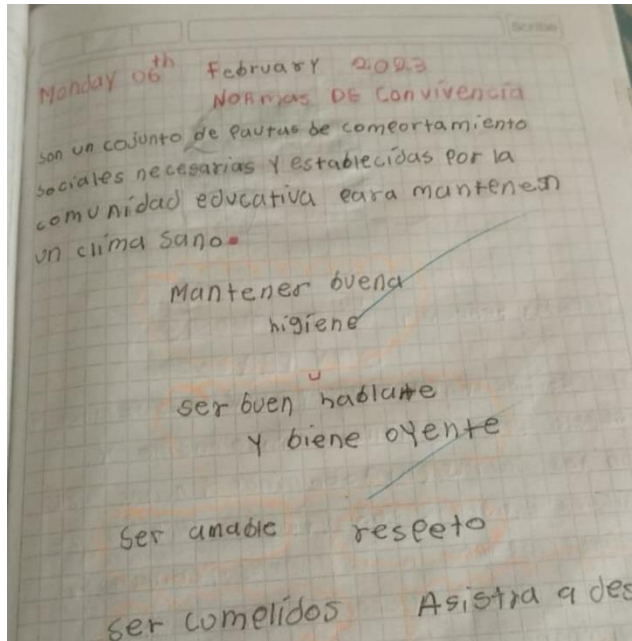 Scribe
Monday 06th February 2023
NORmas DE Convivencia
son un cojunto de Pautas de comportamiento
sociales necesarias Y establecidas Por la
comunidad educativa para mantener
un clima sano.
Mantener buena
higiene
ser buen hablante
y biene oyente
Ser amable respeto
ser comelidos Asistra a des